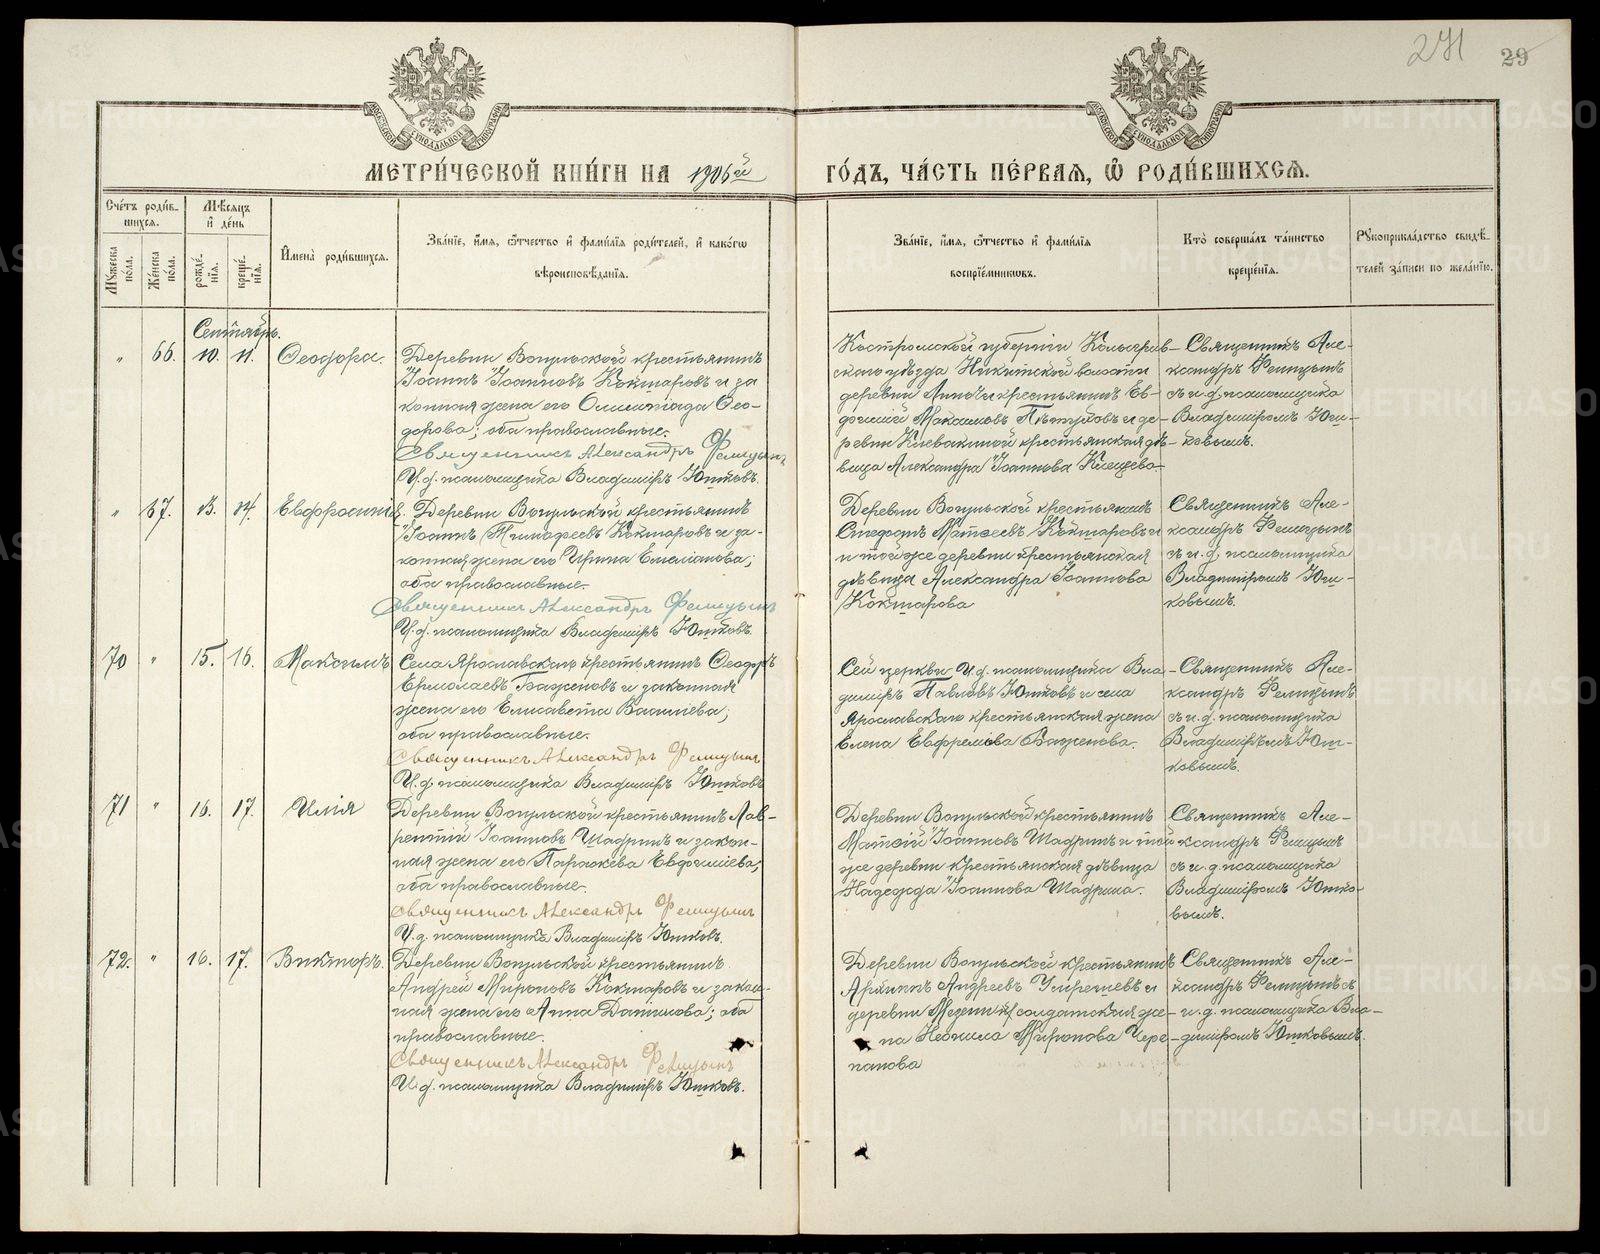 271 29
МЕТРИ́ЧЕСКОЙ КНИ́ГИ НА 1906й ГО́ДЪ, ЧА́СТЬ ПЕ́РВАЯ, Ѽ РОДИ́ВШИХСЯ.
Сче́тъ роди́в-
шихся.
Мѣ́сяцъ
и҆ де́нь
Мꙋжеска
по́ла.
Же́нска
по́ла.
рожде́-
нїя.
креще́-
нїя.
И҆мена̀ роди́вшихся.
Зва́нїе, и҆́мя, ѻ҆́тчество и҆ фами́лїя роди́телей, и҆ како́гѡ
вѣроисповѣ́данїя.
Зва́нїе, и҆́мя, ѻ҆́тчество и҆ фами́лїя
воспрїе́мникѡвъ.
Кто̀ соверша́лъ та́инство
креще́нїя.
Рꙋкоприкла́дство свидѣ́-
телей за́писи по жела́нїю.
Сентябрь.
" 66. 10. 11. Ѳеодора.
Деревни Вогульской крестьянинъ
Іоаннъ Іоанновъ Кокшаровъ и за
конная жена его Олимпіада Ѳео-
дорова; оба православные.
Священникъ Александръ Фелицынъ
И.д. псаломщика Владиміръ Юшковъ.
Костромской губерніи Кологрив-
скаго уѣзда Никитской волости
деревни крестьянинъ Ев-
Максимовъ Пѣтуховъ и де-
ревни Клевакиной крестьянская дѣ-
вица Александра Іоаннова Клещева
Священникъ Але-
ксандръ Фелицынъ
съ и.д. псаломщика
Владиміромъ Юш-
ковымъ.
" 67. 13. 14. Евфросинія.
Деревни Вогульской крестьянинъ
Іоаннъ Тимофеевъ Кокшаровъ и за-
конная жена его Ирина Емеліанова;
оба православные.
Священникъ Александръ Фелицынъ
И.д. псаломщика Владиміръ Юшковъ.
Деревни Вогульской крестьянинъ
Матвеевъ Кокшаровъ и
и той же деревни крестьянская
дѣвица Александра Іоаннова
Кокшарова
Священникъ Але-
ксандръ Фелицынъ
съ и.д. псаломщика
Владиміромъ Юш-
ковымъ.
70 " 15. 16. Максимъ
Села Ярославскаго крестьянинъ Ѳеодоръ
Ермолаевъ Баженовъ и законная
жена его Елисавета Василіева;
оба православные.
Священникъ Александръ Фелицынъ
И.д. псаломщика Владиміръ Юшковъ
Сей церкви И.д. псаломщика Вла
диміръ Павловъ Юшковъ и села
Ярославскаго крестьянская жена
Елена Евфремова Баженова.
Священникъ Але-
ксандръ Фелицынъ
съ и.д. псаломщика
Владиміромъ Юш-
ковымъ.
71 " 16. 17. Илія
Деревни Вогульской крестьянинъ Лав-
рентій Іоанновъ Шадринъ и закон-
ная жена его Параскева Евфиміева;
оба православные.
Священникъ Александръ Фелицынъ
И.д. псаломщика Владиміръ Юшковъ.
Деревни Вогульской крестьянинъ
Матвѣй Іоанновъ Шадринъ и той
же деревни крестьянская дѣвица
Надежда Іоаннова Шадрина.
Священникъ Але-
ксандръ Фелицынъ
съ и.д. псаломщика
Владиміромъ Юшко-
вымъ.
72. " 16. 17. Викторъ.
Деревни Вогульской крестьянинъ
Андрей Мироновъ Кокшаровъ и закон-
ная жена его Анна Данилова; оба
православные.
Священникъ Александръ Фелицынъ
И.д. псаломщика Владиміръ Юшковъ.
Деревни Вогульской крестьянинъ
Архиппъ Андреевъ и
деревни солдатская же-
на Неонила Миронова Чере-
панова
Священникъ Але-
ксандръ Фелицынъ съ
и.д. псаломщика Вла-
диміромъ Юшковымъ.
METRIKI.GASO-URAL.RU